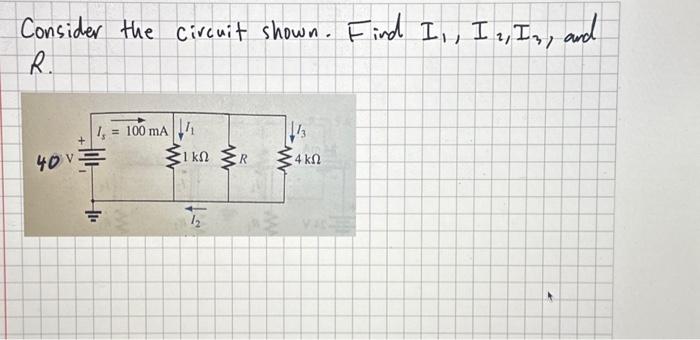 Consider the circuit shown. Find I₁, I₂, I₃, and
R.
Iₛ = 100 mA
I₁
I₃
+
40 V
1 kΩ
R
4 kΩ
-
I₂